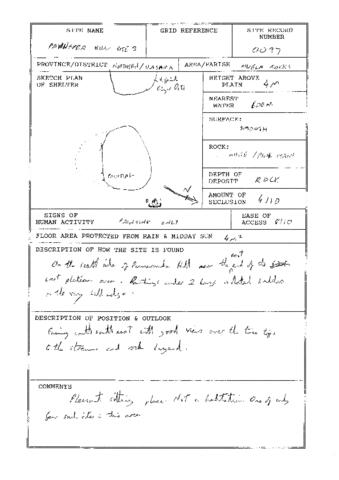 SITE NAME
GRID REFERENCE
SITE RECORD NUMBER
HILL SITE 3
0097
PROVINCE/DISTRICT NORTHERN/
AREA/PARISH ROCKS
SKETCH PLAN OF SHELTER
HEIGHT ABOVE PLAIN 4m
NEAREST WATER 600m
SURFACE:
SMOOTH
ROCK:
DEPTH OF DEPOSIT ROCK
AMOUNT OF SECLUSION 4/10
N
SIGNS OF HUMAN ACTIVITY PAINTINGS ONLY
EASE OF ACCESS 8/10
FLOOR AREA PROTECTED FROM RAIN & MIDDAY SUN 4m²
DESCRIPTION OF HOW THE SITE IS FOUND
On the south side of Hill near the east end of the
east plateau area. Paintings under 2 large boulders
on the very hill edge.
DESCRIPTION OF POSITION & OUTLOOK
Facing south south east with good views over the tree tops
to the streams and beyond.
COMMENTS
Pleasant sitting place. Not a habitation. One of only
few such sites in this area